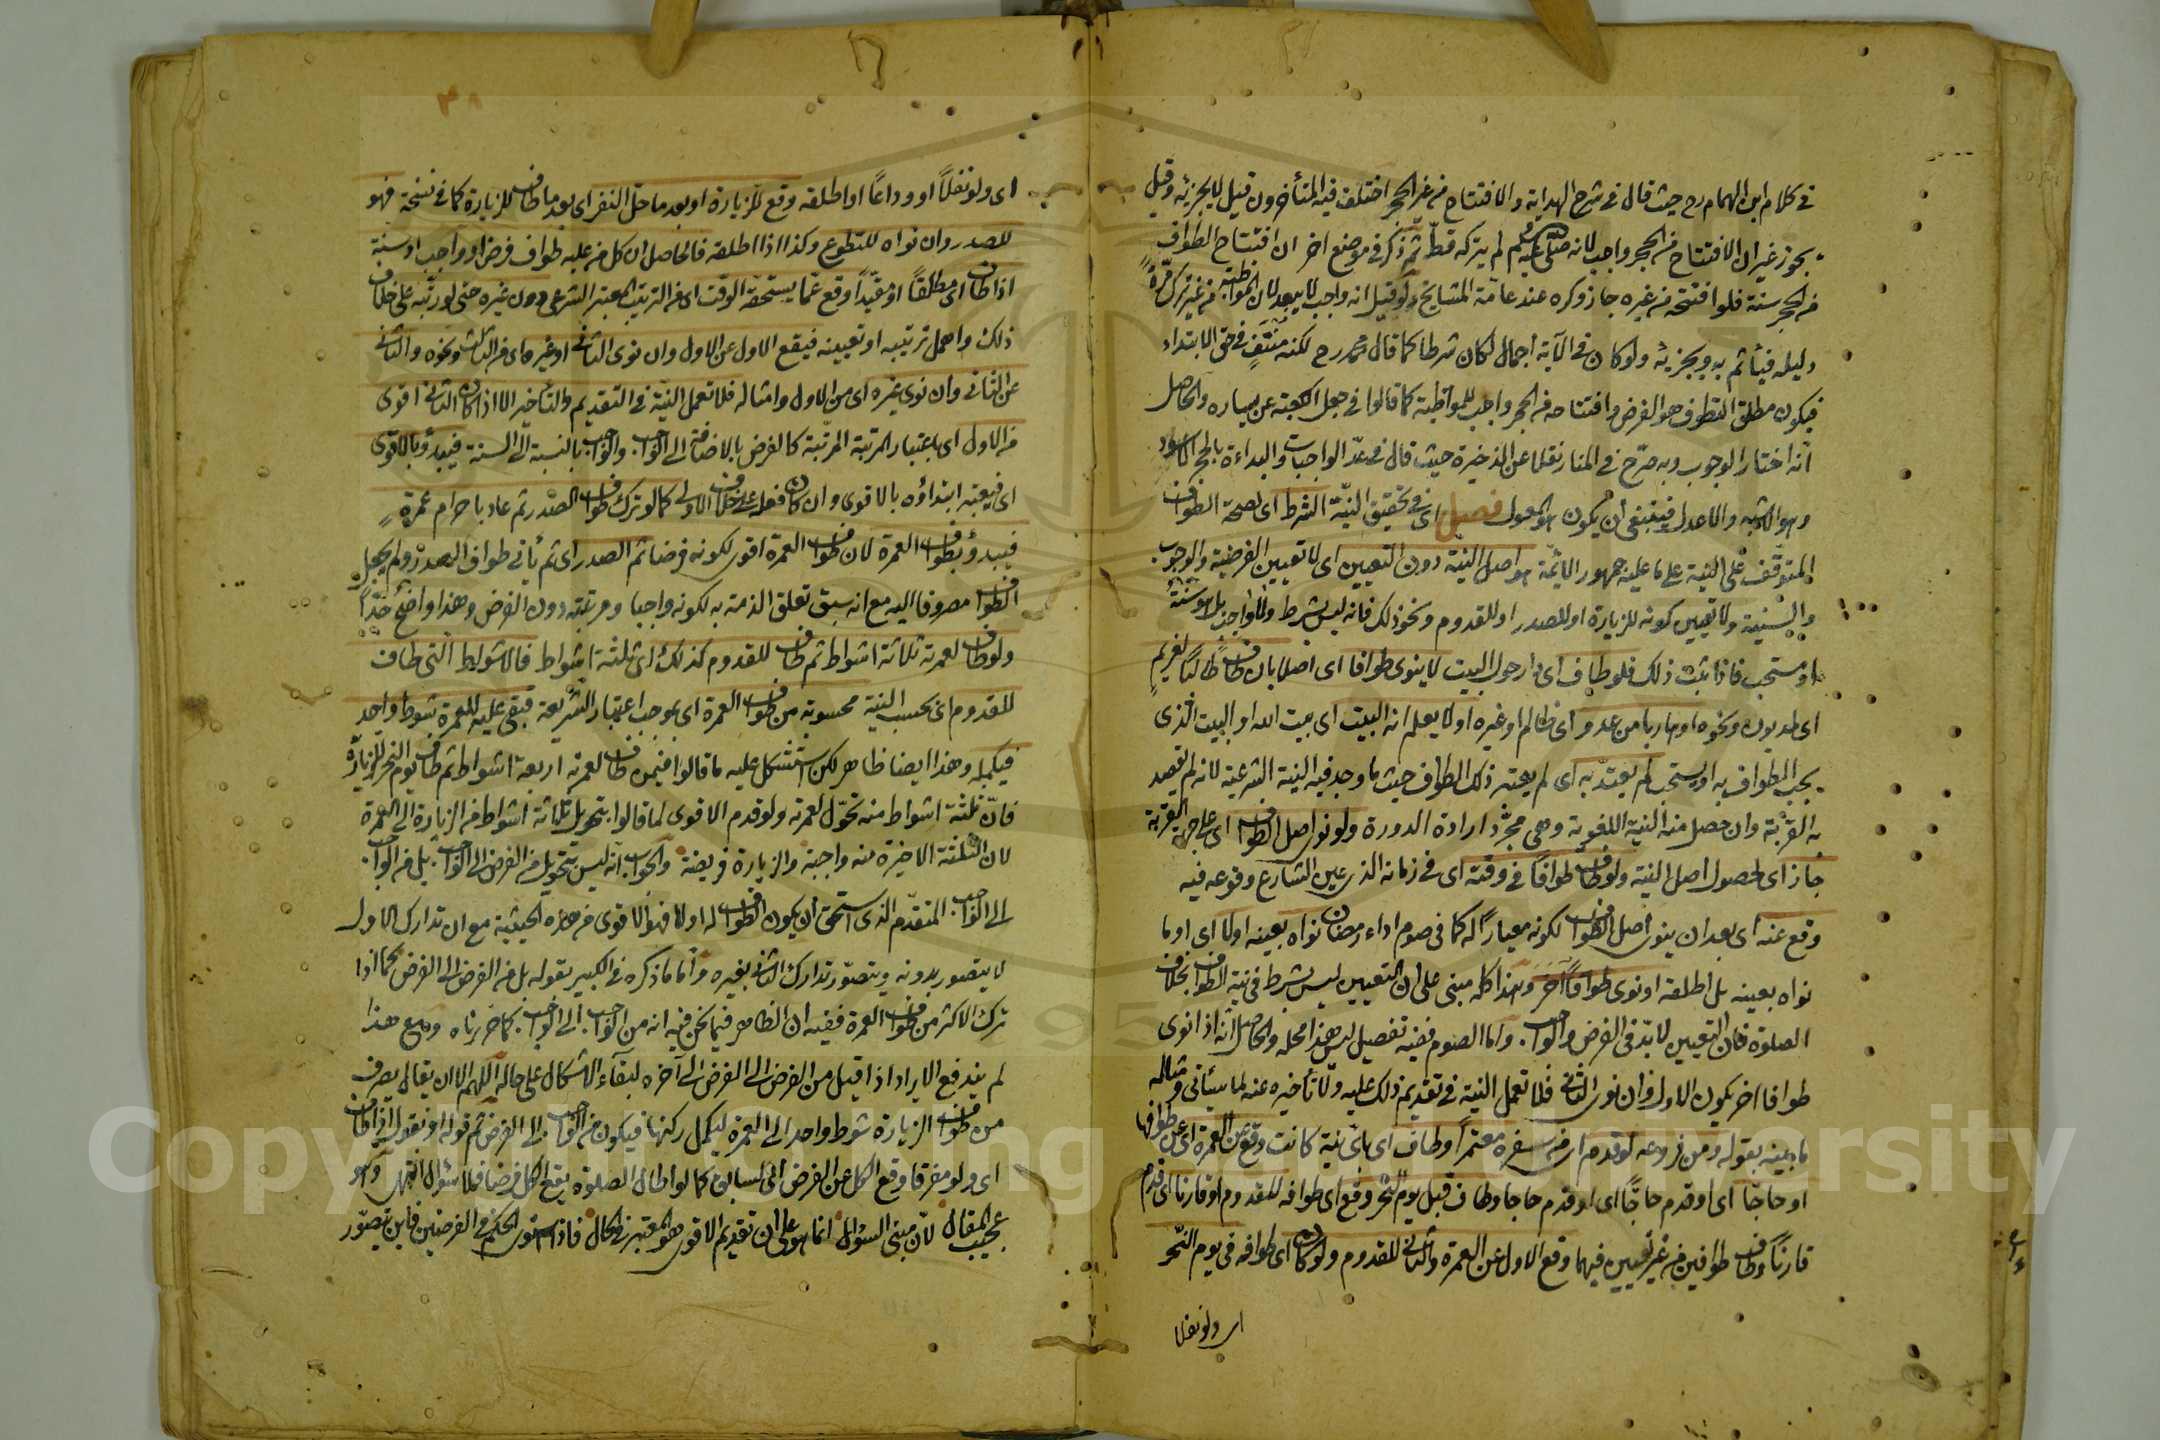 في كلام ابن الهمام رح حيث قال في شرح الهداية والافتتاح من غير الحجر اختلف فيه المتأخرون قيل لا يجزئه وقيل
يجوز غير ان الافتتاح من الحجر واجب لانه صلى عليه سلم لم يتركه قط ثم ذكر في موضع اخر ان افتتاح الطواف
من الحجر سنة فلو افتتحه من غيره جاز وكره عند عامة المشايخ ولو قيل انه واجب لا يبعد لان المواظبة من غير ترك مرة
دليله فيأثم به ويجزئه ولو كان في الآية اجمال لكان شرطا كما قال محمد رح لكنه منتف في حق الابتداء
فيكون مطلق التطوف هو الفرض وافتتاحه من الحجر واجب للمواظبة كما قالوا في جعل الكعبة عن يساره والحاصل
انه اختار الوجوب وبه صرح في المنار نقلا عن الذخيرة حيث قال في عد الواجبات والبداءة بالحجر الاسود
وهو الاشبه والاعدل فينبغي ان يكون هو المعول فصل اي في تحقيق النية الشرط اي لصحة الطواف
المتوقف على النية على ما عليه جمهور الائمة هو اصل النية دون التعيين اي لا تعيين الفرضية والوجوب
والسنية ولا تعيين كونه للزيارة او للصدر او للقدوم ونحو ذلك فانه ليس بشرط ولا واجب بل هو سنة
او مستحب فاذا ثبت ذلك فلو طاف اي دار حول البيت لا ينوي طوافا اي اصلا بان طاف طالبا لغريم
اي مديون ونحوه او هاربا من عدو اي ظالم او غيره او لا يعلم انه البيت اي بيت الله او البيت الذي
يجب الطواف به او يستحب لم يعتد به اي لم يعتبر ذلك الطواف حيث ما وجد فيه النية الشرعية لانه لم يقصد
به القربة وان حصل منه النية اللغوية وهي مجرد ارادة الدورة ولو نوى اصل الطواف اي على جهة القربة
جاز اي لحصول اصل النية ولو طاف طوافا في وقته اي في زمانه الذي عين الشارع وقوعه فيه
وقع عنه اي بعد ان ينوي اصل الطواف لكونه معيارا له كما في صوم اداء رمضان نواه بعينه اولا اي او ما
نواه بعينه بل اطلقه او نوى طوافا آخر وهذا كله مبني على ان التعيين ليس بشرط في نية الطواف بخلاف
الصلوة فان التعيين لا بد في الفرض والواجب واما الصوم ففيه تفصيل ليس هذا محله والحاصل انه اذا نوى
طوافا اخر يكون الاول وان نوى الثاني فلا تعمل النية في تقديم ذلك عليه ولا تأخيره عنه لما سيأتي ومثاله
ما بينه بقوله ومن فروعه لو قدم اي من سفره معتمرا وطاف اي باي نية كانت وقع عن العمرة اي عن طوافها
او حاجا اي او قدم حاجا اي او قدم حاجا وطاف قبل يوم النحر وقع اي طوافه للقدوم او قارنا اي قدم
قارنا وطاف طوافين من غير تعيين فيهما وقع الاول عن العمرة والثاني للقدوم ولو كان اي طوافه في يوم النحر
اي ولو نفلا
٣٨
اي ولو نفلا او وداعا او اطلقه وقع للزيارة او بعد ما حل النفر اي بعد ما طاف للزيارة كما في نسخة فهو
للصدر وان نواه للتطوع وكذا اذا اطلقه فالحاصل ان كل من عليه طواف فرض او واجب او سنة
اذا طاف اي مطلقا او مقيدا وقع عما يستحقه الوقت اي من الترتيب المعتبر الشرعي دون غيره حتى لو رتبه على خلاف
ذلك واهمل ترتيبه او تعيينه فيقع الاول عن الاول وان نوى الثاني او غيره اي من الثالث ونحوه والثاني
عن الثاني وان نوى غيره اي من الاول وامثاله فلا تعمل النية في التقديم والتأخير الا اذا كان الثاني اقوى
من الاول اي باعتبار المرتبة المرتبة كالفرض بالاضافة الى الواجب والواجب بالنسبة الى السنة فيبدؤ بالاقوى
اي فيعتبر ابتداؤه بالاقوى وان كان فعله على خلاف الاولى كما لو ترك طواف الصدر ثم عاد باحرام عمرة
فيبدؤ بطواف العمرة لان طواف العمرة اقوى لكونه فرضا ثم الصدر اي ثم يأتي طواف الصدر ولم يجعل
الطواف مصروفا اليه مع انه سبق تعلق الذمة به لكونه واجبا ومرتبته دون الفرض وهذا واضح جدا
ولو طاف لعمرته ثلاثة اشواط ثم طاف للقدوم كذلك اي ثلثة اشواط فالاشواط التي طاف
للقدوم اي بحسب النية محسوبة من طواف العمرة اي بموجب اعتبار الشريعة فبقي عليه للعمرة شوط واحد
فيكمله وهذا ايضا ظاهر لكن استشكل عليه ما قالوا فيمن طاف لعمرته اربعة اشواط ثم طاف يوم النحر للزيارة
فان ثلثة اشواط منه تحول لعمرته ولو قدم الاقوى لما قالوا بتحويل ثلاثة اشواط من الزيارة الى العمرة
لان الثلثة الاخيرة منه واجبة والزيارة فريضة والجواب انه ليس بتحويل من الفرض الى الواجب بل من الواجب
الى الواجب المتقدم الذي استحق ان يكون الطواف له اولا فهو الاقوى من هذه الحيثية مع ان تدارك الاول
لا يتصور بدونه ويتصور تدارك الثاني بغيره واما ما ذكره في الكبير بقوله بل من الفرض الى الفرض كما اذا
ترك الاكثر من طواف العمرة ففيه ان الظاهر فيما نحن فيه انه من الواجب الى الواجب كما حررناه ومع هذا
لم يندفع الايراد اذا قيل من الفرض الى الفرض الى آخره لبقاء الاشكال على حاله اللهم الا ان يقال يصرف
من طواف الزيارة شوط واحد الى العمرة ليكمل ركنها فيكون من الواجب الى الفرض ثم قوله او نقول اذا طاف
اي ولو مفرقا وقع الكل عن الفرض اي السابق كما لو اطال الصلوة يقع الكل فرضا فلا سؤال انتهى وهو
عجيب المقال لان مبنى السؤال انما هو على ان تقديم الاقوى هو المعتبر في الحال فاذا استوى الحكم في الفرضين فاين يتصور